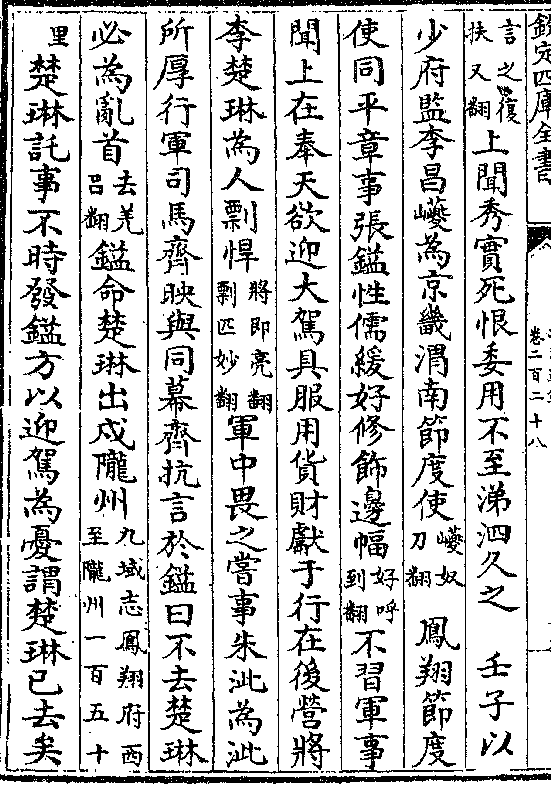 欽定四庫全書
卷二百二十八
言之復扶又翻上聞秀實死恨委用不至涕泗久之　壬子以
少府監李昌巙為京畿渭南節度使巙奴刀翻　鳳翔節度
使同平章事張鎰性儒緩好修飾邊幅好呼到翻不習軍事
聞上在奉天欲迎大駕具服用貨財獻于行在後營將
李楚琳為人剽悍將即亮翻剽匹妙翻軍中畏之嘗事朱泚為泚
所厚行軍司馬齊映與同幕齊抗言於鎰曰不去楚琳
必為亂首去羌呂翻鎰命楚琳出戍隴州九域志鳳翔府西至隴州一百五十
里楚琳託事不時發鎰方以迎駕為憂謂楚琳已去矣